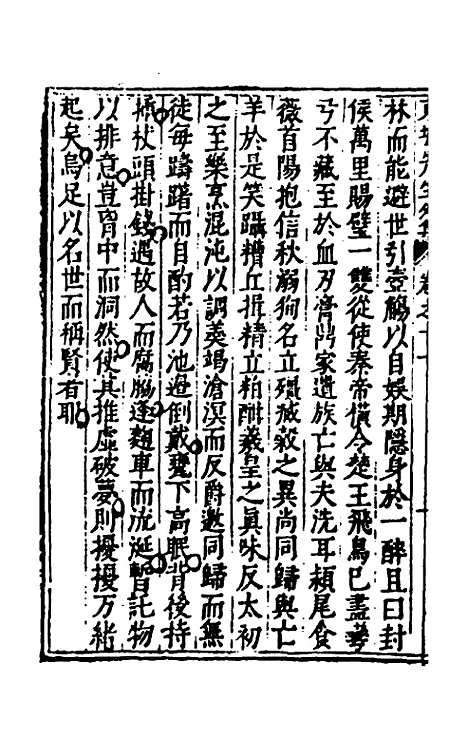 林而能避世引壺觴以自娛期隱身於一醉且曰封
侯萬里賜璧一雙從使秦帝橫令楚王飛鳥已盡
弓不藏至於血刃膏家遺族亡與夫洗耳潁尾食
薇首陽抱信秋溺狥名立殞臧穀之異尚同歸與亡
羊於是笑躡糟丘揖精立粕酣羲皇之真味反太初
之至樂烹混沌以調羹竭滄溟而反爵邀同歸而無
徒每躊躇而自酌若乃池邊倒戴甕下高眠背後持
杖頭掛錢遇故人而腐脇逢麴車而流涎暫託物
以排意豈胷中而洞然使其推虛破夢則擾擾万緒
起矣烏足以名世而稱賢者耶